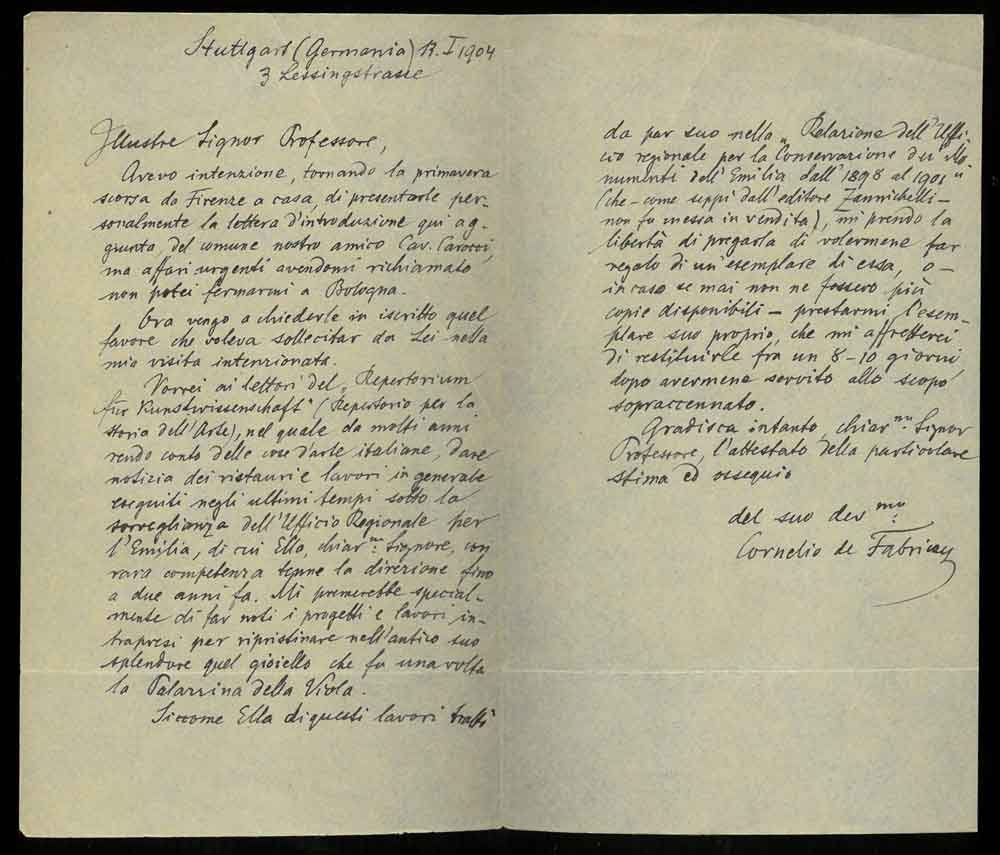 Stuttgart (Germania) 13. I 1904
3 Lessingstrasse
Illustre Signor Professore,
Avevo intenzione, tornando la primavera
scorsa da Firenze a casa, di presentarle per-
sonalmente la lettera d'introduzione qui ag-
giunta, del comune nostro amico Cav. Carocci,
ma affari urgenti avendomi richiamato
non potei fermarmi a Bologna.
Ora vengo a chiederle in iscritto quel
favore che voleva sollecitar da Lei nella
mia visita intenzionata.
Vorrei ai lettori del „Repertorium
für Kunstwissenschaft" (Repertorio per la
storia dell'Arte), nel quale da molti anni
rendo conto delle cose d'arte italiane, dare
notizia dei ristauri e lavori in generale
eseguiti negli ultimi tempi sotto la
sorveglianza dell'Ufficio Regionale per
l'Emilia, di cui Ella, chiar.mo Signore, con
rara competenza tenne la direzione fino
a due anni fa. Mi premerebbe special-
mente di far noti i progetti e lavori in-
trapresi per ripristinare nell'antico suo
splendore quel gioiello che fu una volta
la Palazzina della Viola.
Siccome Ella di questi lavori trattò
da par suo nella „Relazione dell'Uffi-
cio regionale per la Conservazione dei Mo-
numenti dell'Emilia dall'1898 al 1901"
(che - come seppi dall'editore Zannichelli -
non fu messa in vendita), mi prendo la
libertà di pregarla di volermene far
regalo di un'esemplare di essa, o -
in caso se mai non ne fossero più
copie disponibili - prestarmi l'esem-
plare suo proprio, che mi affretterei
di restituirle fra un 8-10 giorni
dopo avermene servito allo scopo
sopraccennato.
Gradisca intanto, chiar.mo Signor
Professore, l'attestato della particolare
stima ed ossequio
del suo dev.mo
Cornelio de Fabriczy